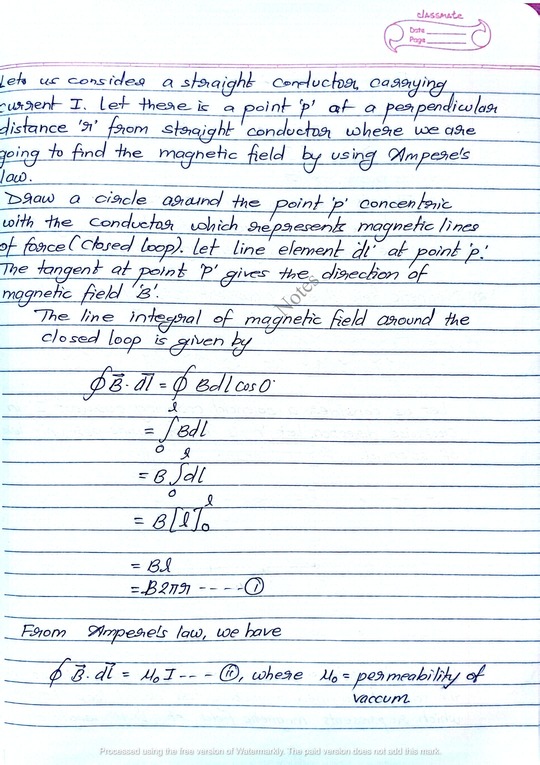 classmate
Date
Page
Lets us consider a straight conductor carrying
current I. Let there is a point 'p' at a perpendicular
distance 'r' from straight conductor where we are
going to find the magnetic field by using Ampere's
law.
Draw a circle around the point 'p' concentric
with the conductor which represents magnetic lines
of force (closed loop). Let line element 'dl' at point 'p'.
The tangent at point 'P' gives the direction of
magnetic field 'B'.
Notes
The line integral of magnetic field around the
closed loop is given by
∮ B⃗. dl⃗ = ∮ Bdl cos0°
= ∫₀ˡ Bdl
= B ∫₀ˡ dl
= B[l]₀ˡ
= Bl
= B2πr ---- (i)
From Ampere's law, we have
∮ B⃗. dl⃗ = μ₀ I --- (ii), where μ₀ = permeability of
vaccum
Processed using the free version of Watermarkly. The paid version does not add this mark.